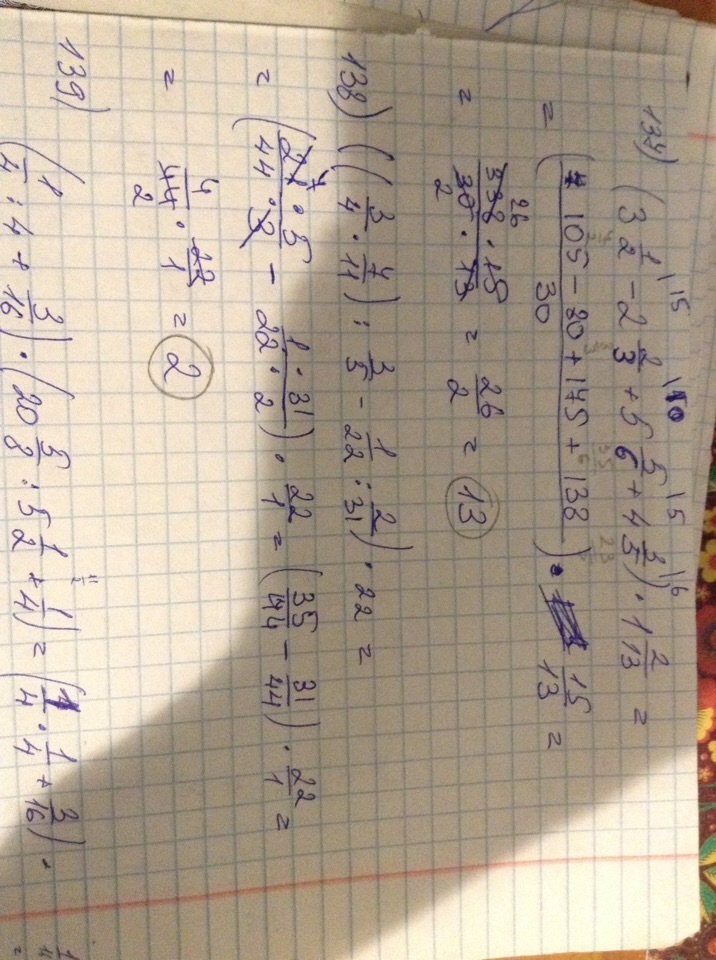 137) (3 1/2 - 2 2/3 + 5 5/6 + 4 3/5) · 1 2/13 =
= (105 - 80 + 175 + 138)/30 · 15/13 =
= 338 · 15/30 · 13 = 26/2 = 13
138) ((3/4 · 7/11) : 3/5 - 1/22 : 2/31) · 22 =
= (21 · 5/44 · 3 - 1 · 31/22 · 2) · 22/1 = (35/44 - 31/44) · 22/1 =
= 4/44 · 22/1 = 2
139)
(1/4 : 4 + 3/16) · (20 5/8 : 5 1/2 + 1/4) = (1/4 · 1/4 + 3/16) ·